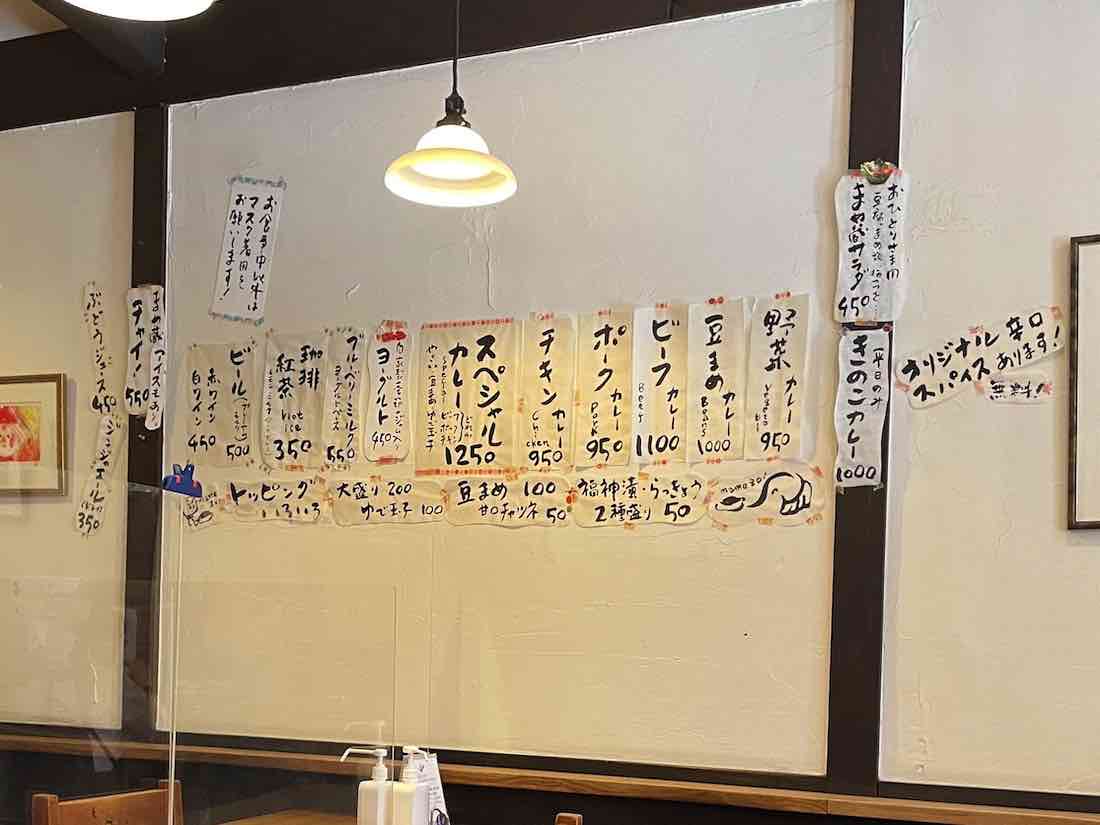 おひとりさま用
まめ蔵サラダ
450
平日のみ
きのこカレー
1000
オリジナル 辛口
スパイスあります!
無料!
野菜カレー
950
豆まめカレー
Beans
1000
ビーフカレー
Beef
1100
ポークカレー
Pork
950
チキンカレー
Chicken
950
スペシャルカレー
1250
ヨーグルト
450
ブルーベリーミルク
550
珈琲
紅茶
Hot
ice
350
ビール
500
赤ワイン
白ワイン
450
お食事中以外は
マスク着用を
お願いします!
まめ蔵 アイスもあり
チャイ!
550
ぶどうジュース 450
ジンジャエール
350
トッピング
いろいろ
大盛り 200
ゆで玉子 100
豆まめ 100
甘口チャツネ 50
福神漬・らっきょう
2種盛り 50
mamezo!